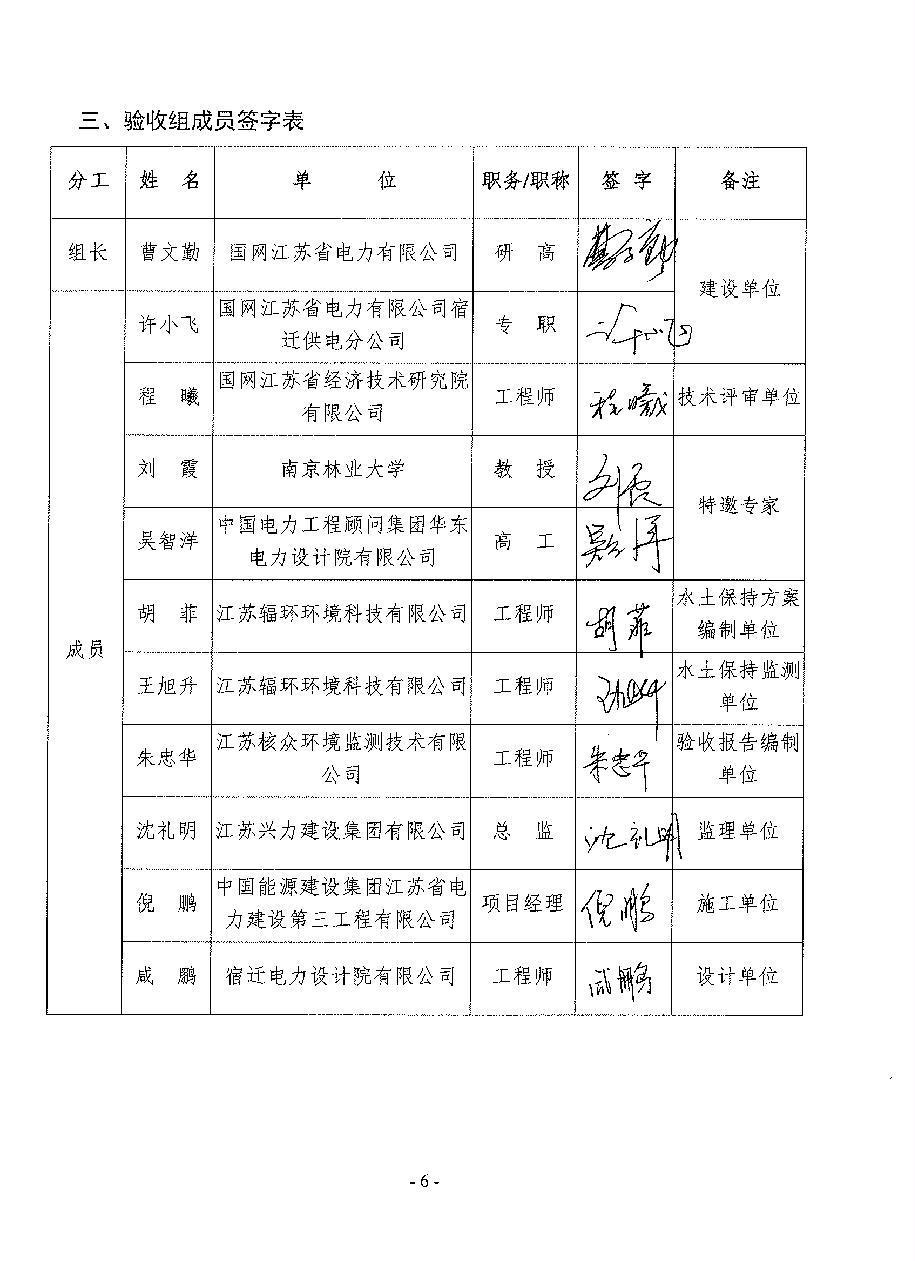 三、验收组成员签字表
分工 姓 名 单 位 职务/职称 签 字 备注
组长 曹文勤 国网江苏省电力有限公司 研 高 曹文勤 建设单位
成员 许小飞 国网江苏省电力有限公司宿
迁供电分公司 专 职 许小飞
程 曦 国网江苏省经济技术研究院
有限公司 工程师 程曦 技术评审单位
刘 霞 南京林业大学 教 授 刘霞 特邀专家
吴智洋 中国电力工程顾问集团华东
电力设计院有限公司 高 工 吴智洋
胡 菲 江苏辐环环境科技有限公司 工程师 胡菲 水土保持方案
编制单位
王旭升 江苏辐环环境科技有限公司 工程师 王旭升 水土保持监测
单位
朱忠华 江苏核众环境监测技术有限
公司 工程师 朱忠华 验收报告编制
单位
沈礼明 江苏兴力建设集团有限公司 总 监 沈礼明 监理单位
倪 鹏 中国能源建设集团江苏省电
力建设第三工程有限公司 项目经理 倪鹏 施工单位
咸 鹏 宿迁电力设计院有限公司 工程师 咸鹏 设计单位
- 6 -